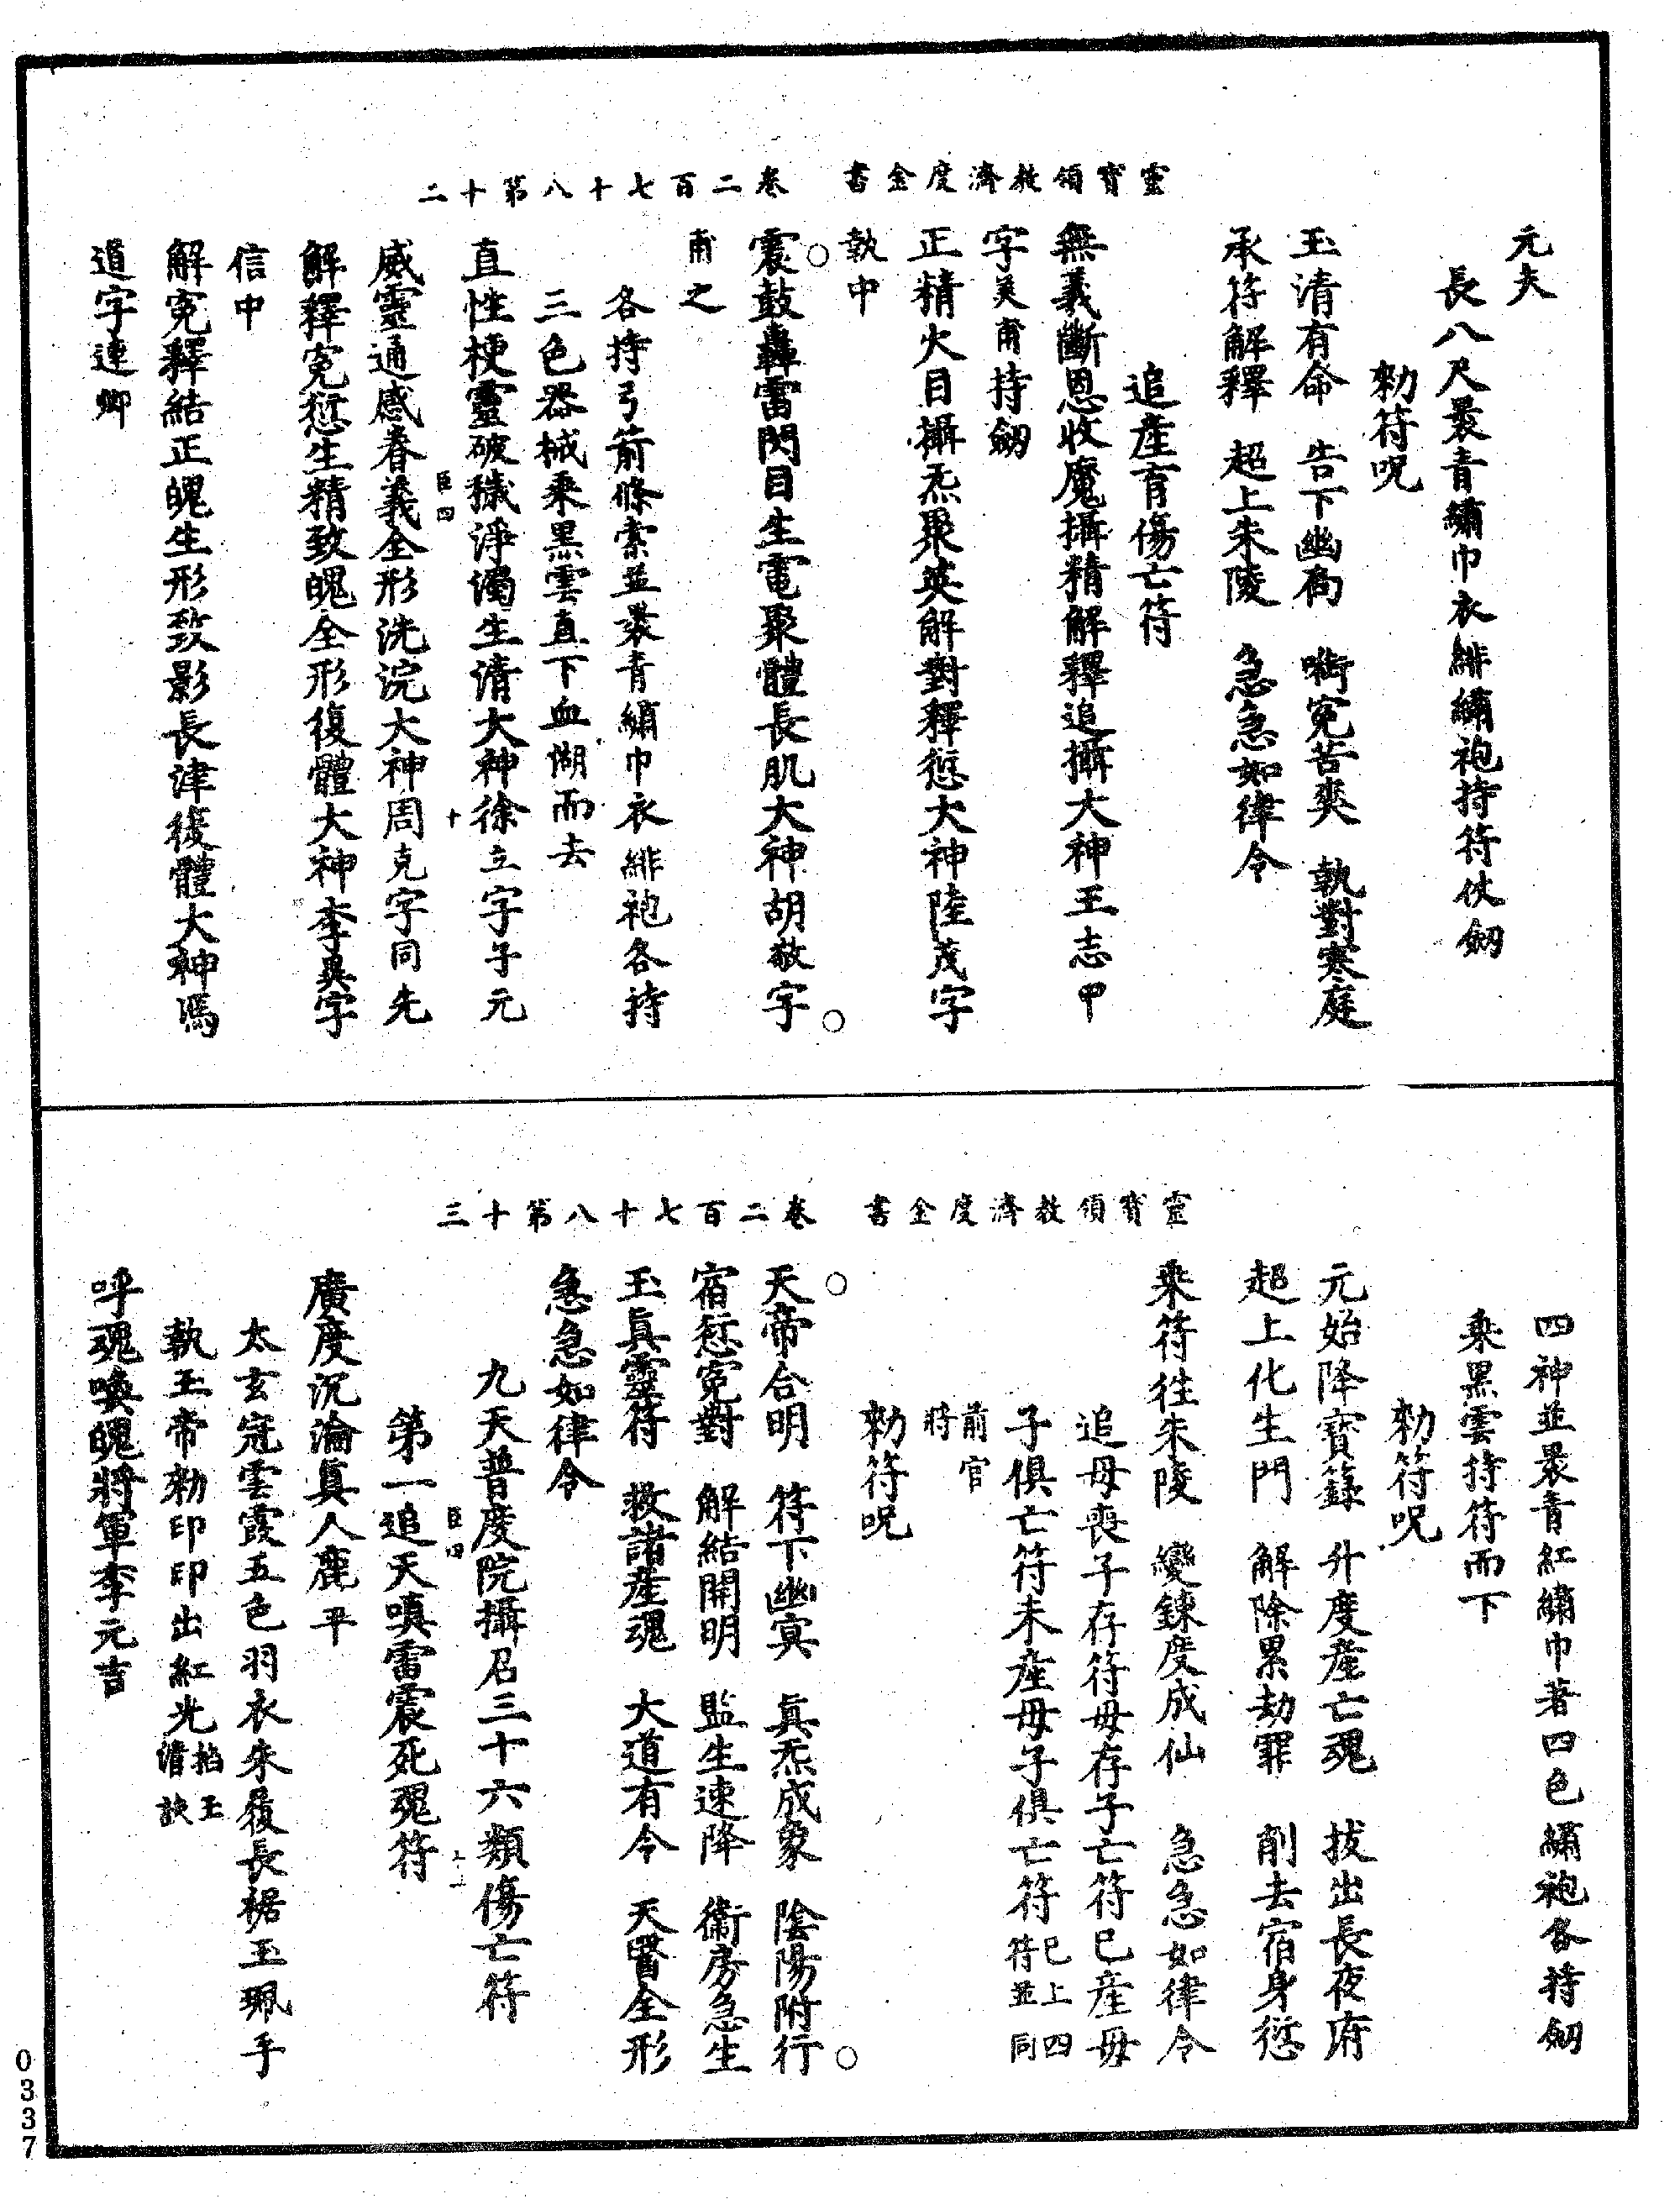 元夫
長八尺裹青繡巾衣緋繡袍持符伏劒
勑符呪
玉清有命　告下幽局　衘寃苦爽　執對寒庭
承符解釋　超上朱陵　急急如律令
追產育傷亡符
無義斷恩收魔攝精解釋追攝大神王志甲
字英甫持劒
正精火目攝炁聚英解對釋愆大神陸茂字
執中
震鼓轟雷閃目生電聚體長肌大神胡敬字
甫之
各持弓箭絛索並裹青繡巾衣緋袍各持
三色器械乘黑雲直下血湖而去
直性梗靈破穢淨濁生清大神徐立字子元
威靈通感春義全形洗浣大神周克字同先
解釋寃愆生精致魄全形復體大神李異字
信中
解寃釋結正魄生形致影長津復體大神馮
道字達卿
靈寶領教濟度金書　卷二百七十八第十二
臣四　十
四神並裹青紅繡巾著四色繡袍各持劒
乘黑雲持符而下
勑符呪
元始降寶籙　升度產亡魂　拔出長夜府
超上化生門　解除累劫罪　削去宿身愆
乘符徃朱陵　變鍊度成仙　急急如律令
追母喪子存符母存子亡符已產母
子俱亡符未產母子俱亡符已上四符並同
前官將
勑符呪
天帝合明　符下幽冥　眞炁成象　陰陽附行
宿愆寃對　解結開明　監生速降　衞房急生
玉眞靈符　救諸產魂　大道有令　天醫全形
急急如律令
九天普度院攝召三十六類傷亡符
第一追天嗔雷震死魂符
廣度沉淪眞人鹿平
太玄冠雲霞五色羽衣朱履長裾玉珮手
執玉帝勑印印出紅光掐玉清訣
呼魂喚魄將軍李元吉
靈寶領教濟度金書　卷二百七十八第十三
臣四
0337